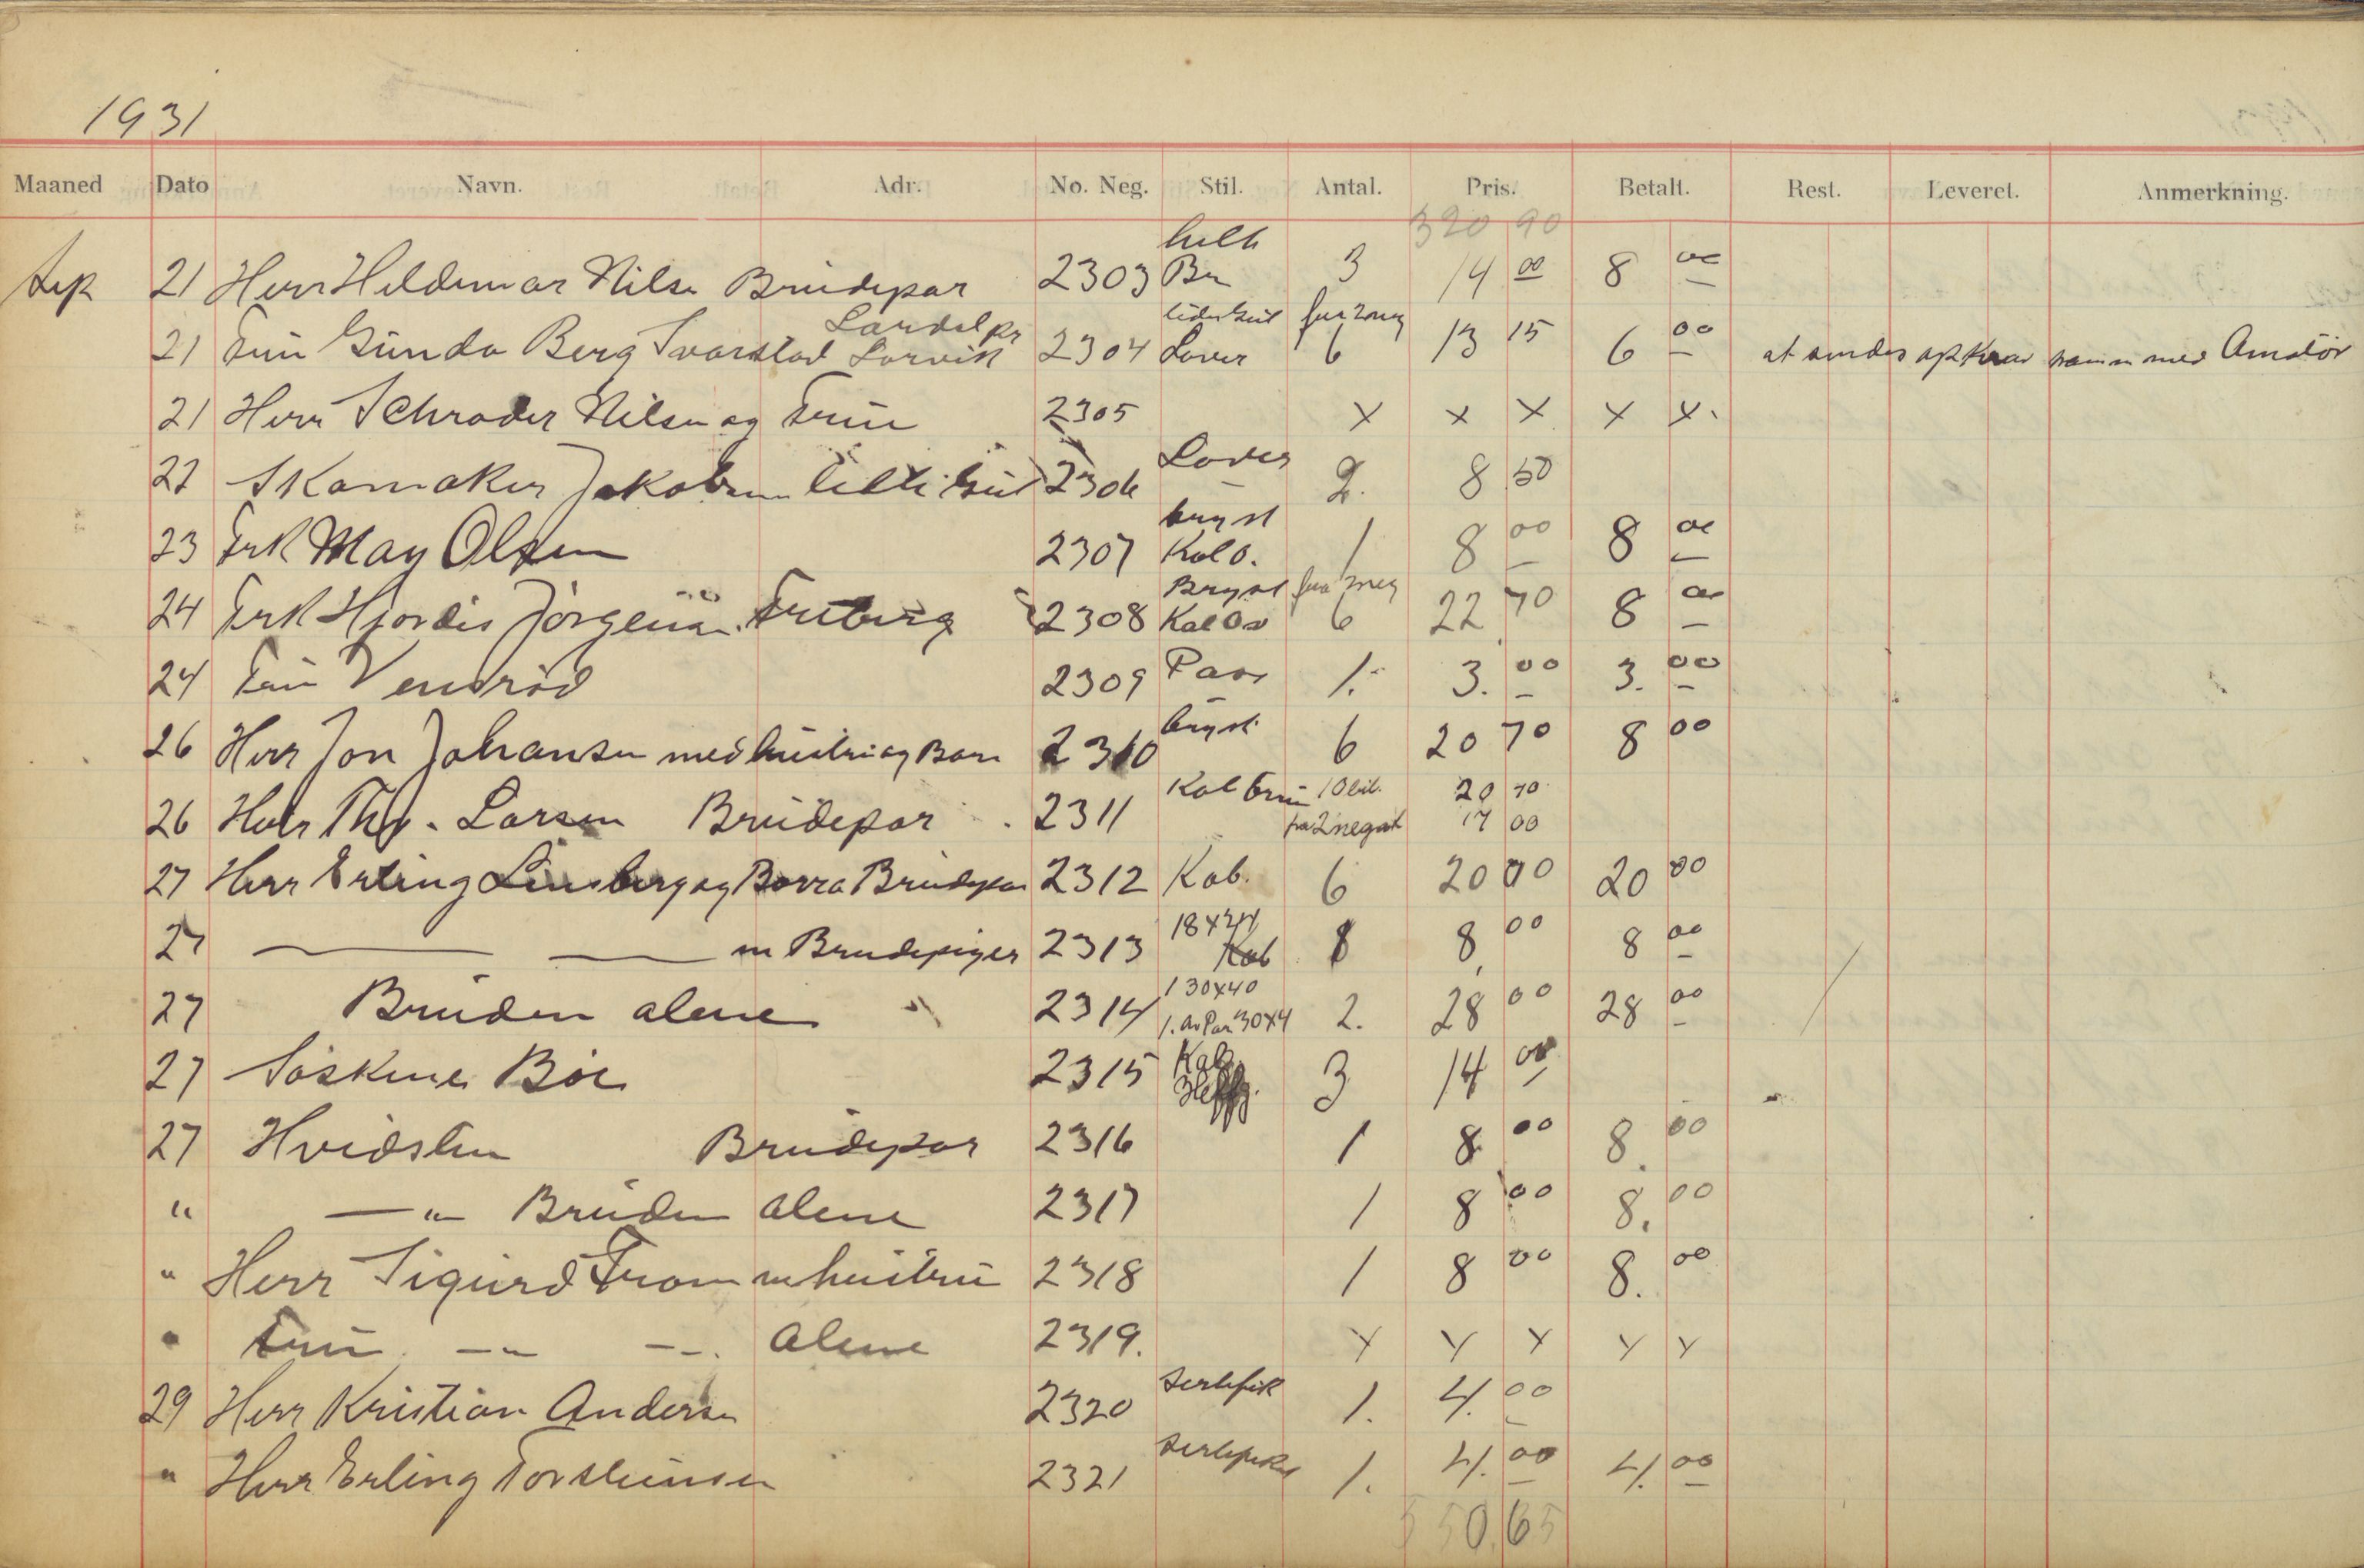 1931
Maaned Dato Navn. Adr. No. Neg. Stil. Antal. Pris. Betalt. Rest. Leveret. Anmerkning.
320 90
Sep 21 Herr Hildemar Nilsen Brudepar 2303 helt Br 3 14 00 8 00
Lardal pr
21 Fru Gunda Berg Svarstad Larvik 2304 6 13 15 6 00 at sendes opkrav samen med Amatör
21 Herr Schrøder Nilsen og Frue 2305 x x x x x
22 Skomaker Jakobsen lille Gut 2306 2. 8 50
23 Frk May Olsen 2307 bryst Kol o. 1 8 00 8 00
24 Frk Hjordis Jørgensen. 2308 Bryst fra 2 neg 6 22 70 8 00
24 Fru Vensrød 2309 Pass 1. 3. 00 3. 00
26 Herr Jon Johansen med hustru og Barn 2310 bryst 6 20 70 8 00
26 Herr Thv. Larsen Brudepar 2311 10 bil. 20 70
fra 2 negat 17 00
27 Herr Erling Linsberg og Borra Brudepar 2312 Kab. 6 20 00 20 00
27 m Brudepiger 2313 18x24 Kab 8 8 00 8 00
27 Bruden alene 2314 1 30x40 2. 28 00 28 00
1. av Par 30x4
27 Søskene Bøe 2315 Kab 3 14 00
27 Hvidsten Brudepar 2316 1 8 00 8. 00
" —"— Bruden alene 2317 1 8 00 8. 00
" Herr Sigurd From m hustru 2318 1 8 00 8. 00
" Fru —"— —. alene 2319. x x x x x
29 Herr Kristian Andersen 2320 Sertifik 1. 4. 00
" Herr Erling Torsteinsen 2321 1. 4. 00 4. 00
550.65